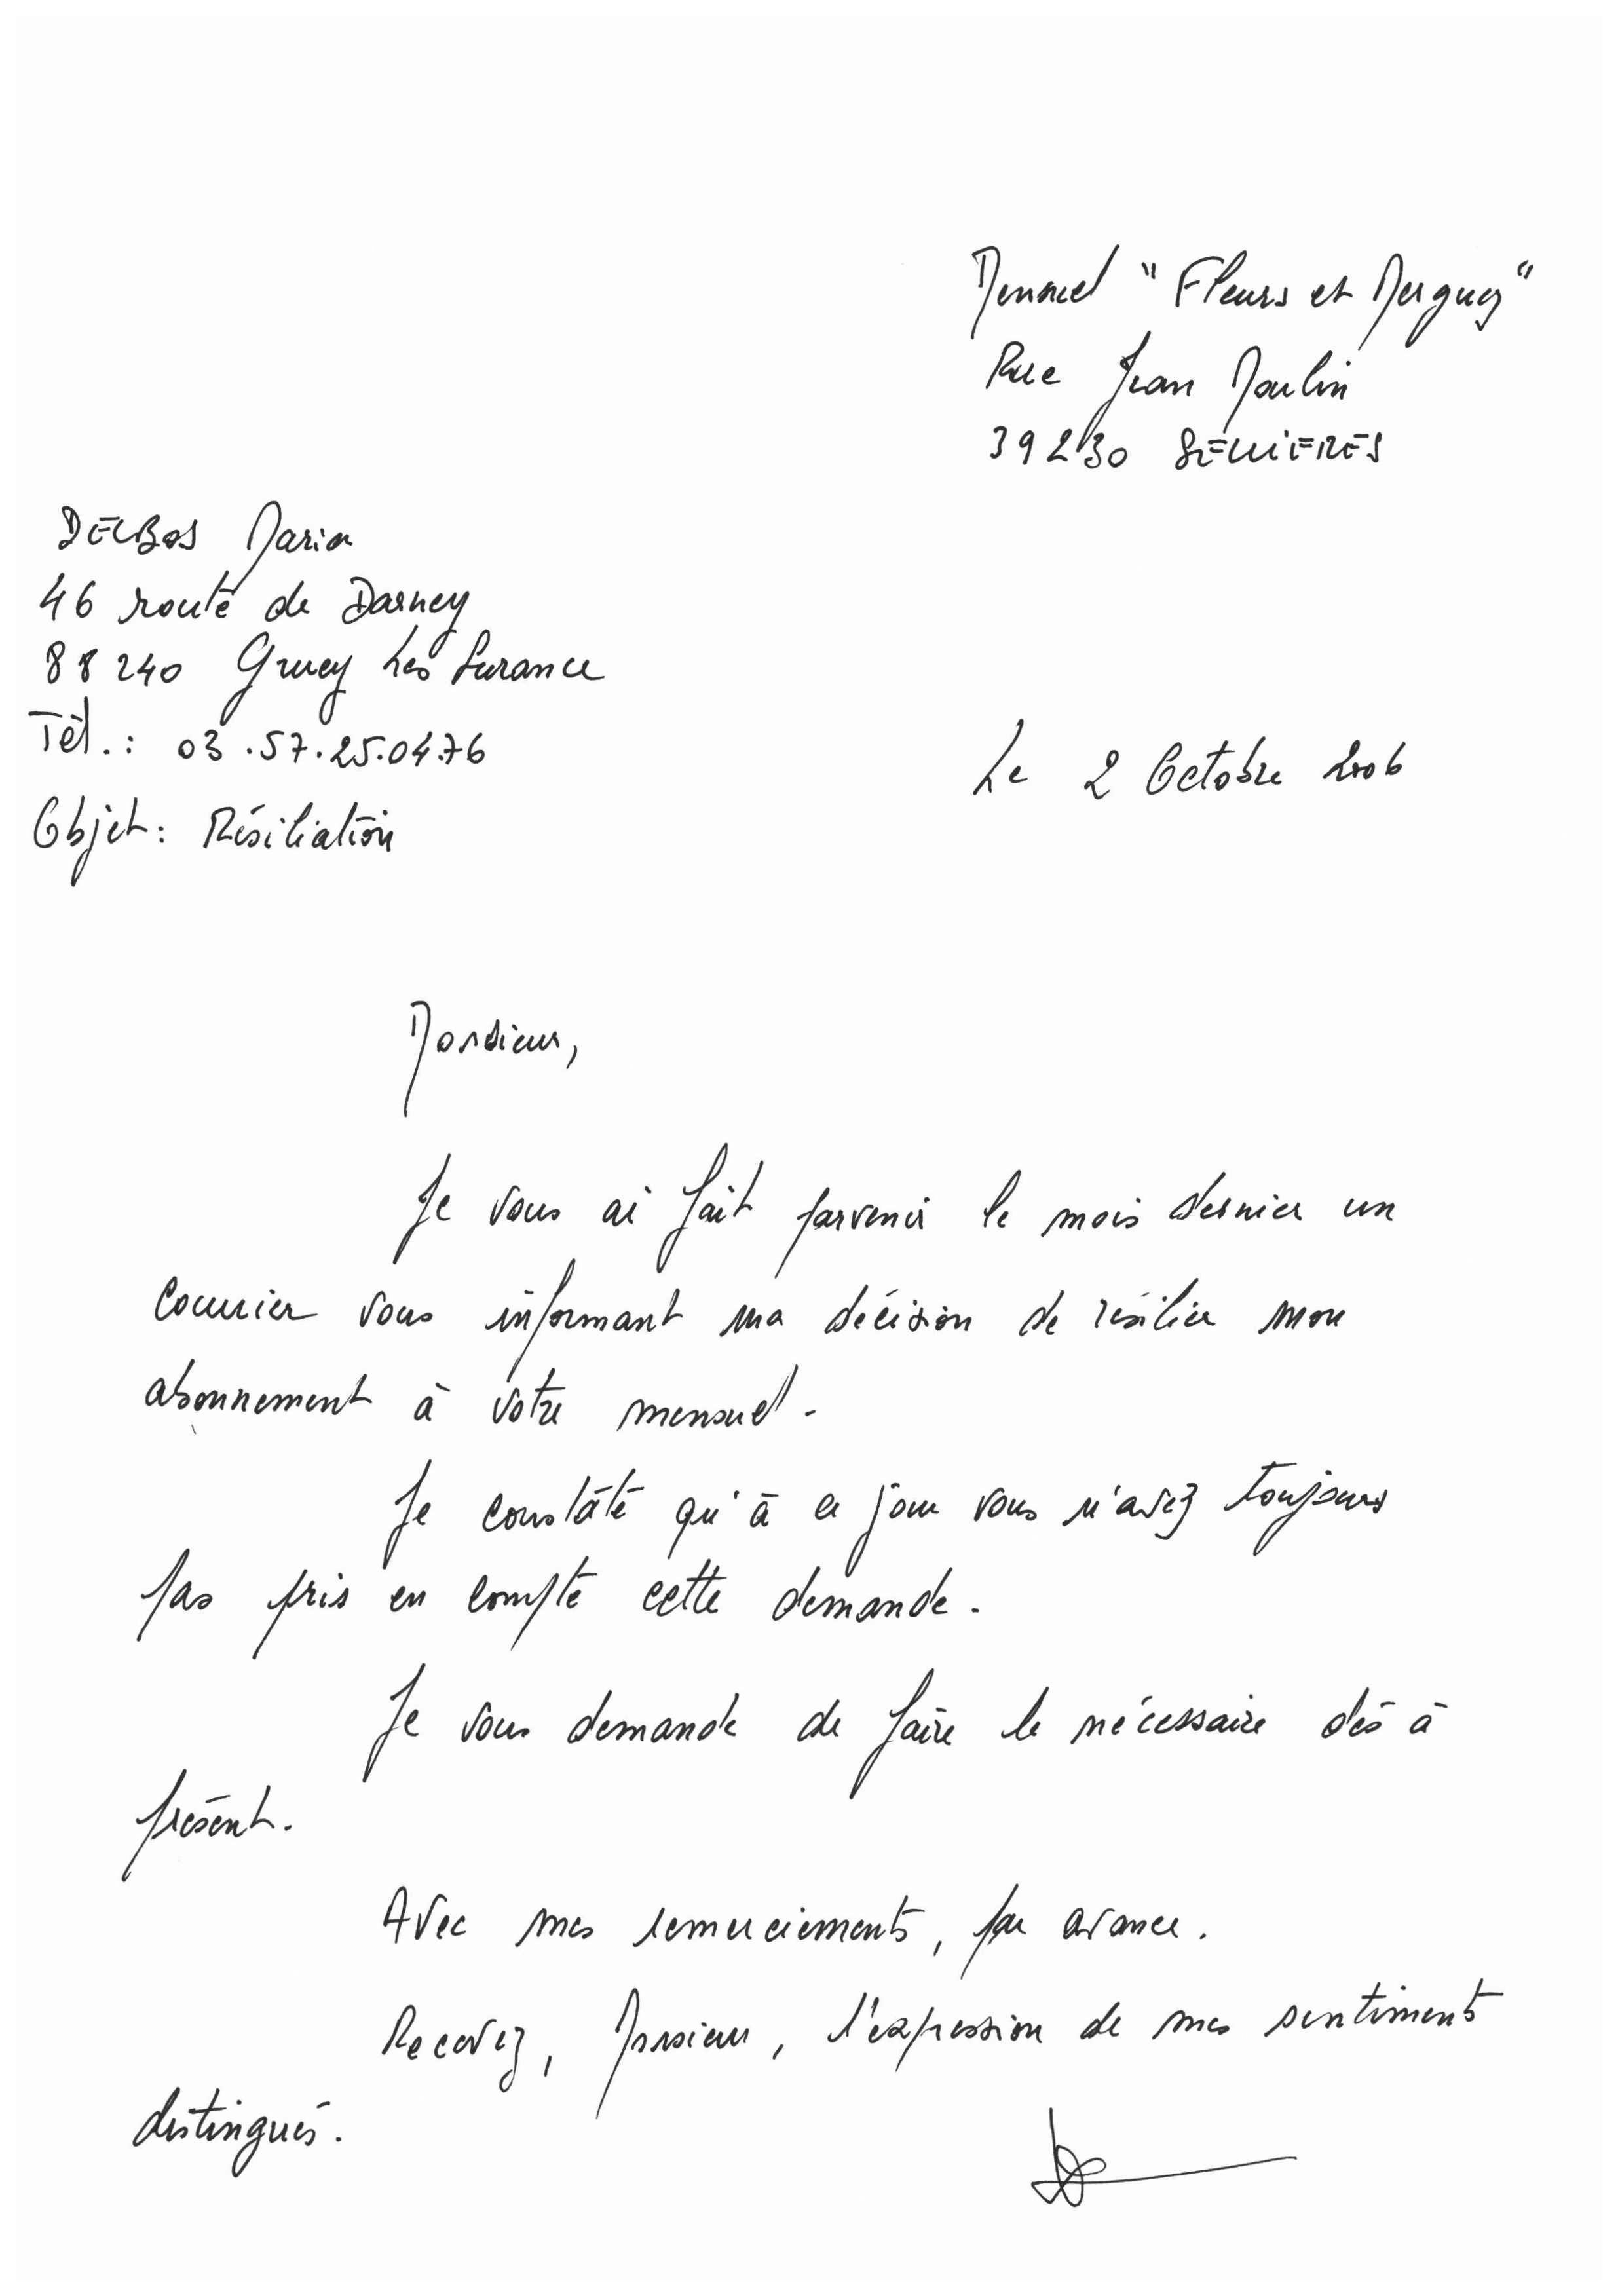 Mensuel "Fleurs et Merguez"
Rue Jean Moulin
39230 SELLIERES
DELBOS Maria
46 route de Darney
88240 Gruey Les Surance
Tél.: 03.57.25.04.76
Le 2 Octobre 2006
Objet: Résiliation
Monsieur,
Je vous ai fait parvenir le mois dernier un
courrier vous informant ma décision de résilier mon
abonnement à votre mensuel.
Je constate qu'à ce jour vous n'avez toujours
pas pris en compte cette demande.
Je vous demande de faire le nécessaire dès à
présent.
Avec mes remerciements, par avance.
Recevez, Monsieur, l'expression de mes sentiments
distingués.